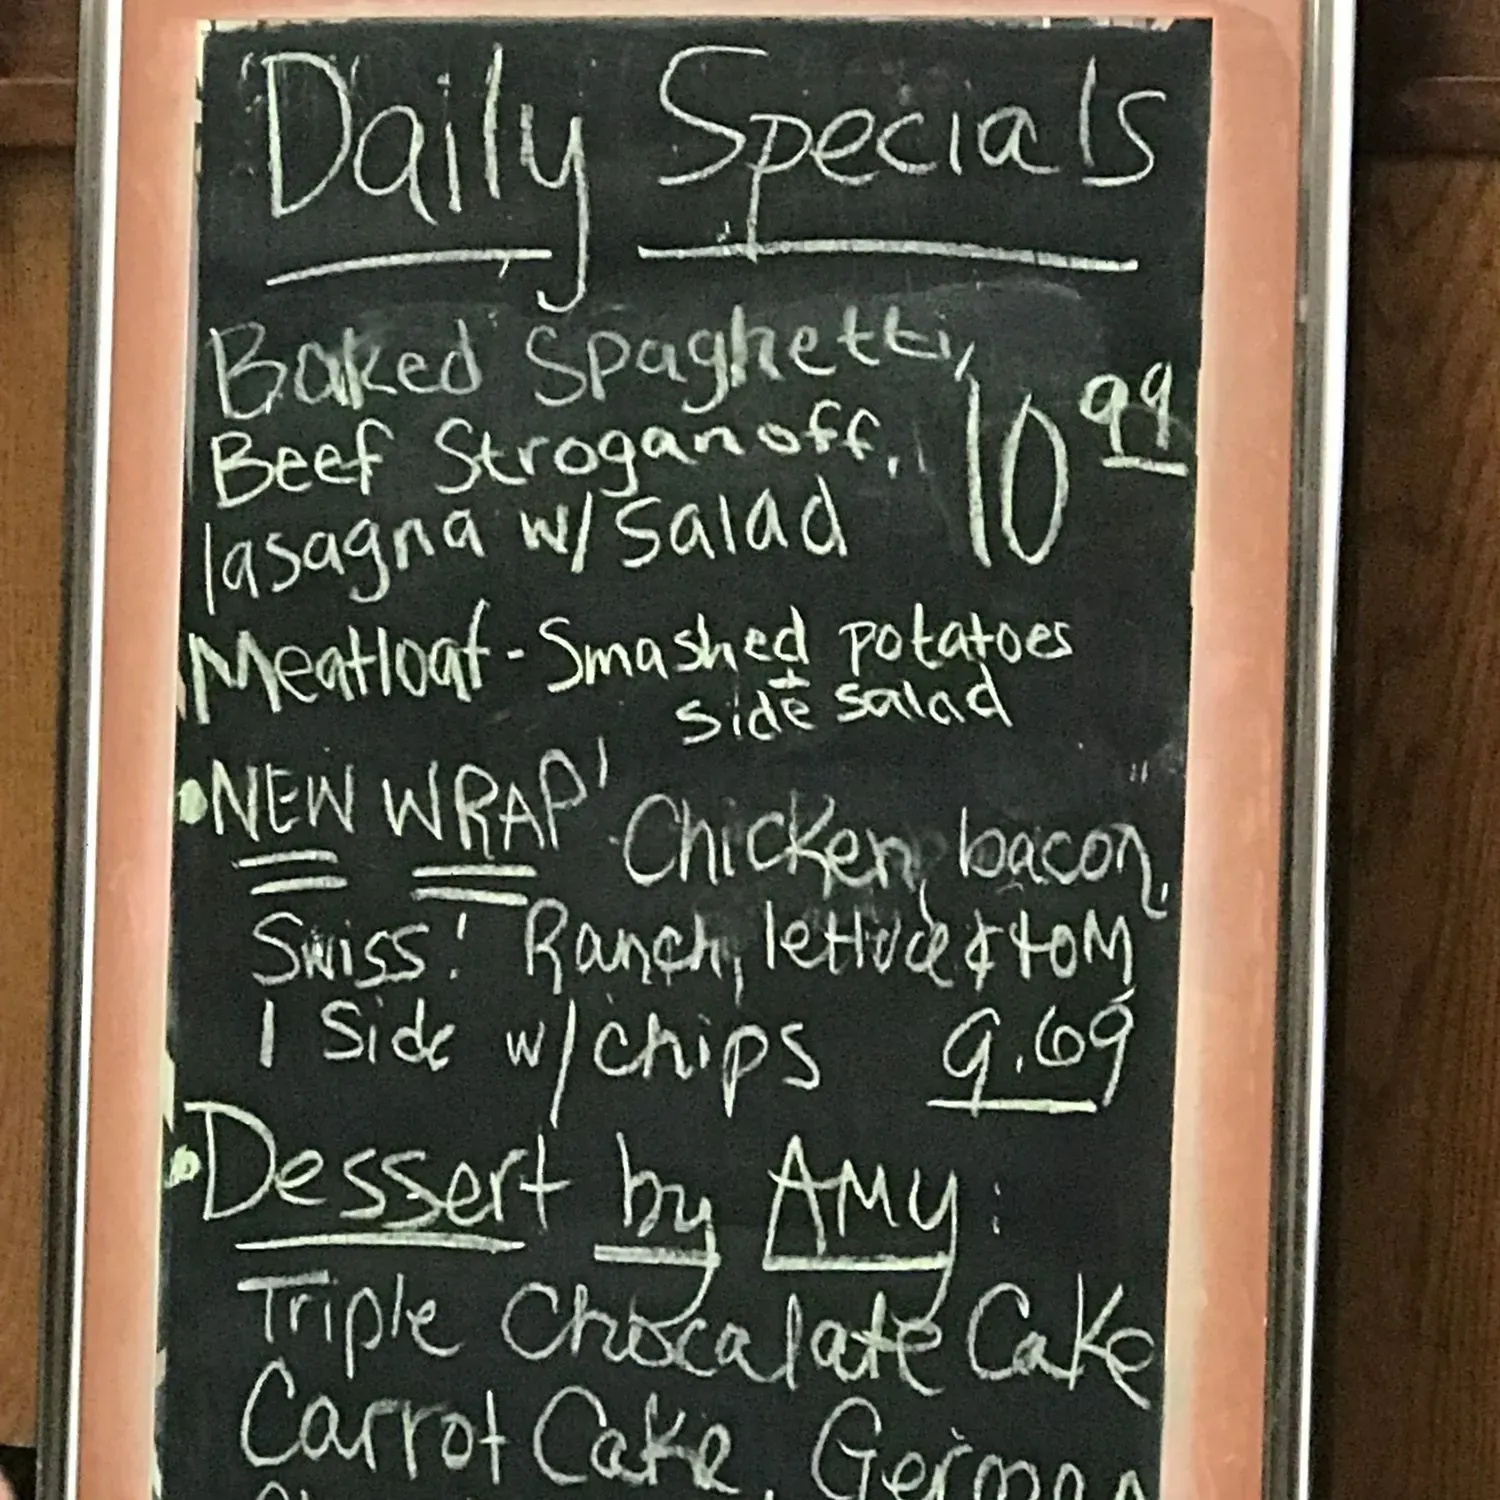 Daily Specials
Baked Spaghetti,
Beef Stroganoff,
lasagna w/ salad
10 99
Meatloaf - Smashed potatoes
+ side salad
• NEW WRAP! Chicken, bacon,
Swiss! Ranch, lettuce & tom
1 Side w/ chips 9.69
• Dessert by AMY:
Triple Chocalate Cake
Carrot Cake, German